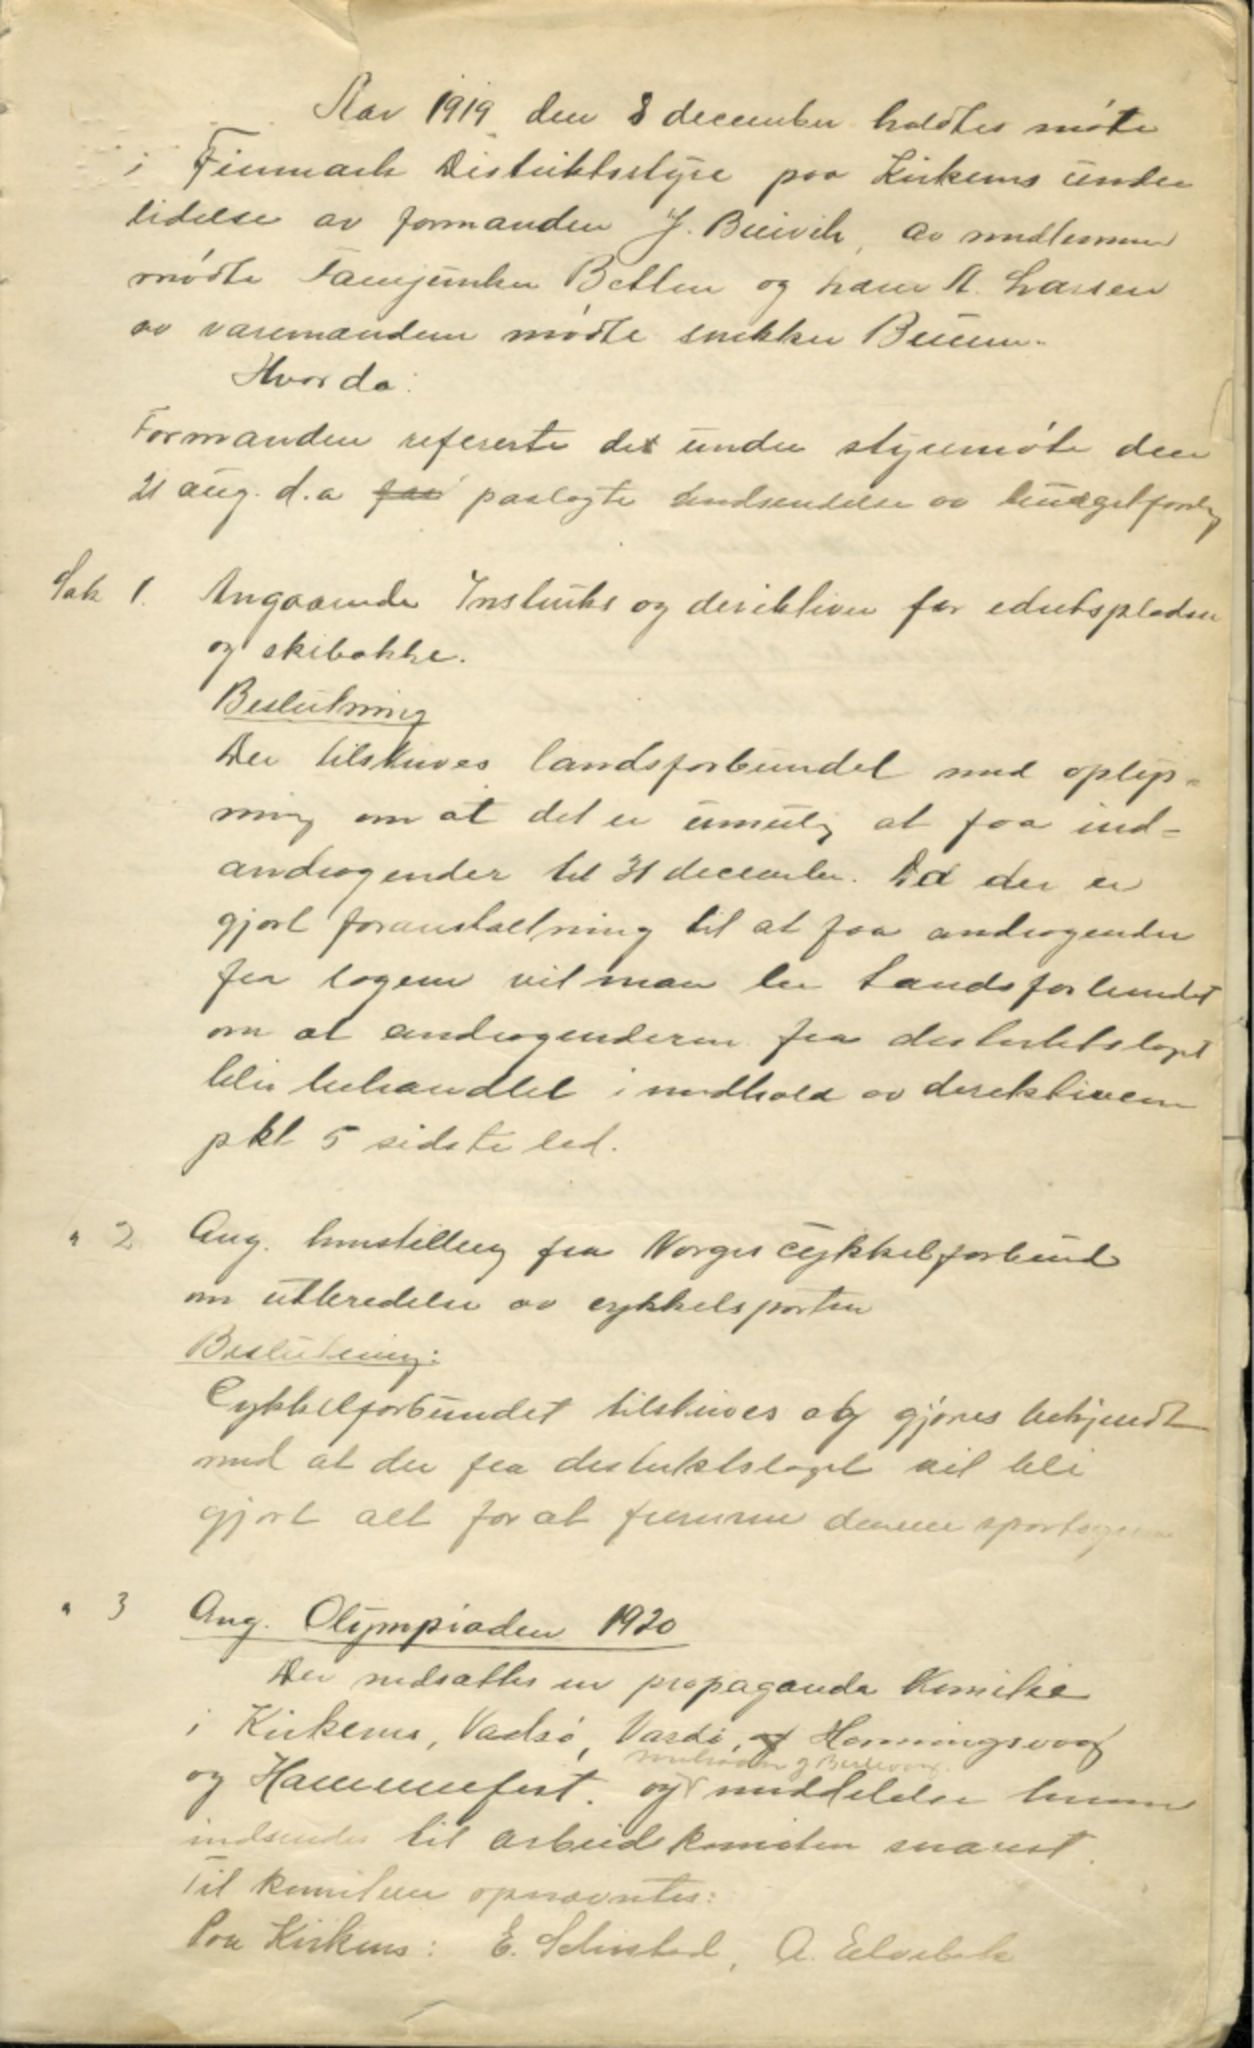 Aar 1919 den 8 december holdtes møte
i Finmark Distriktsstyre paa Kirkenes under
ledelse av formanden J. Breivik, av medlemmer
mødte Fanejunker Betten og Hans A. Larsen
av varemændene mødte snekker Bruun.
Hvorda:
Formanden refererte det under styremøte den
21 aug. d.a paalagte indsendelse av budgetforslag
Sak 1. Angaaende Instruks og derektiver for idretspladser
og skibakke.
Beslutning
Der tilskrives landsforbundet med oplys-
ning om at det er umulig at faa ind-
andragender til 31 december. Da der er
gjort foranstaltning til at faa andragender
fra lagene vil man be Landsforbundet
om at andragenderne fra distriktslaget
blir behandlet i medhold av derektivene
pkt 5 sidste led.
" 2 Ang. henstilling fra Norges Cykkelforbund
om utbredelse av cykkelsporten
Beslutning:
Cykkelforbundet tilskrives og gjøres bekjendt
med at der fra distriktslaget vil bli
gjort alt for at fremme denne sportsgren
" 3 Ang. Olympiaden 1920
Der nedsættes en propaganda Komite
i Kirkenes, Vadsø, Vardø, Honningsvaag
Berlevaag
og Hammerfest. og meddelelse herom
indsendes til arbeidskomiteen snarest.
Til komiteen opnævntes:
Paa Kirkenes: E. Schistad, A. Elvebak